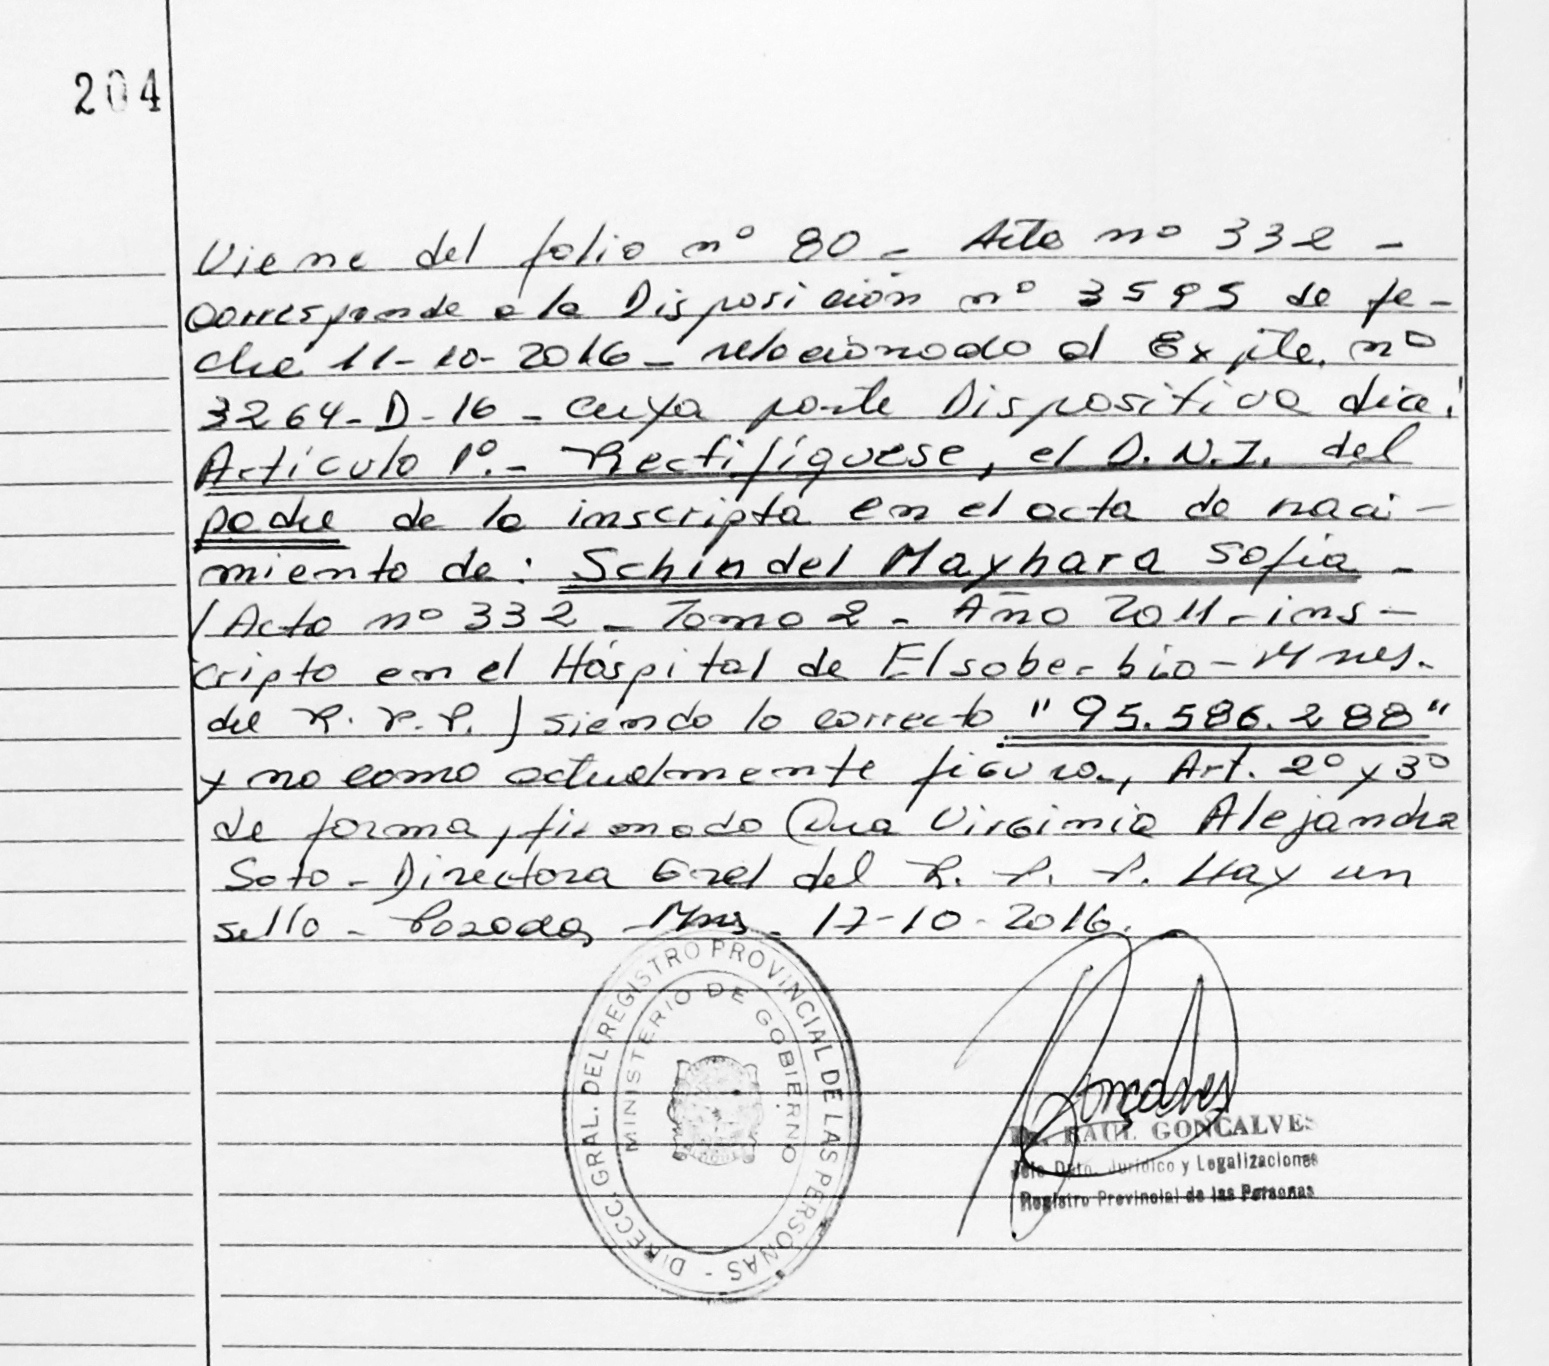 204
Viene del folio nº 80 - Acta nº 332 -
corresponde a la Disposición nº 3595 de fe-
cha 11-10-2016 - relacionado al Expte. nº
3264-D-16 - cuya parte Dispositiva dice:
Artículo 1º.- Rectifíquese, el D.N.I. del
padre de la inscripta en el acta de naci-
miento de: Schindel Mayhara Sofia -
(Acta nº 332 - Tomo 2 - Año 2011 - ins-
cripto en el Hospital de El soberbio - Mnes.
del R.P.P.) siendo lo correcto "95.586.288"
y no como actualmente figura., Art. 2º y 3º
de forma, firmado Dra Virginia Alejandra
Soto - Directora Gral del R.P.P. Hay un
sello - Posadas, Mns. 17-10-2016.
DIRECC. GRAL. DEL REGISTRO PROVINCIAL DE LAS PERSONAS -
MINISTERIO DE GOBIERNO
Gonçalves
Dr. RAUL GONCALVES
Jefe Dpto. Jurídico y Legalizaciones
Registro Provincial de las Personas